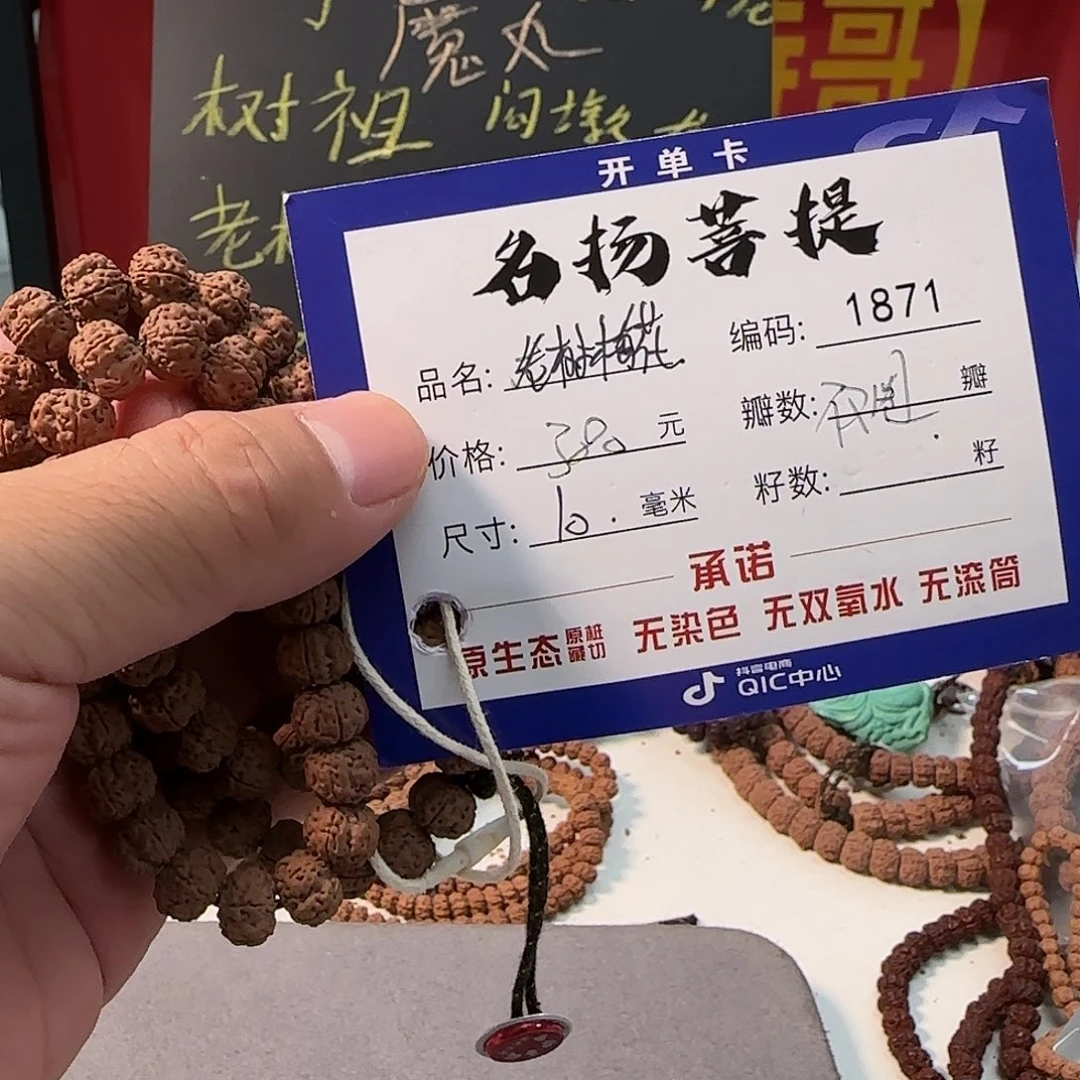 魔丸
树祖 闪墩
老
哥】
开单卡
名扬菩提
品名: 老树梅花 编码: 1871
价格: 380 元 瓣数: 瓣
尺寸: 10. 毫米 籽数: 籽
承诺
原生态 原桩藏切 无染色 无双氧水 无滚筒
抖音电商
QIC中心